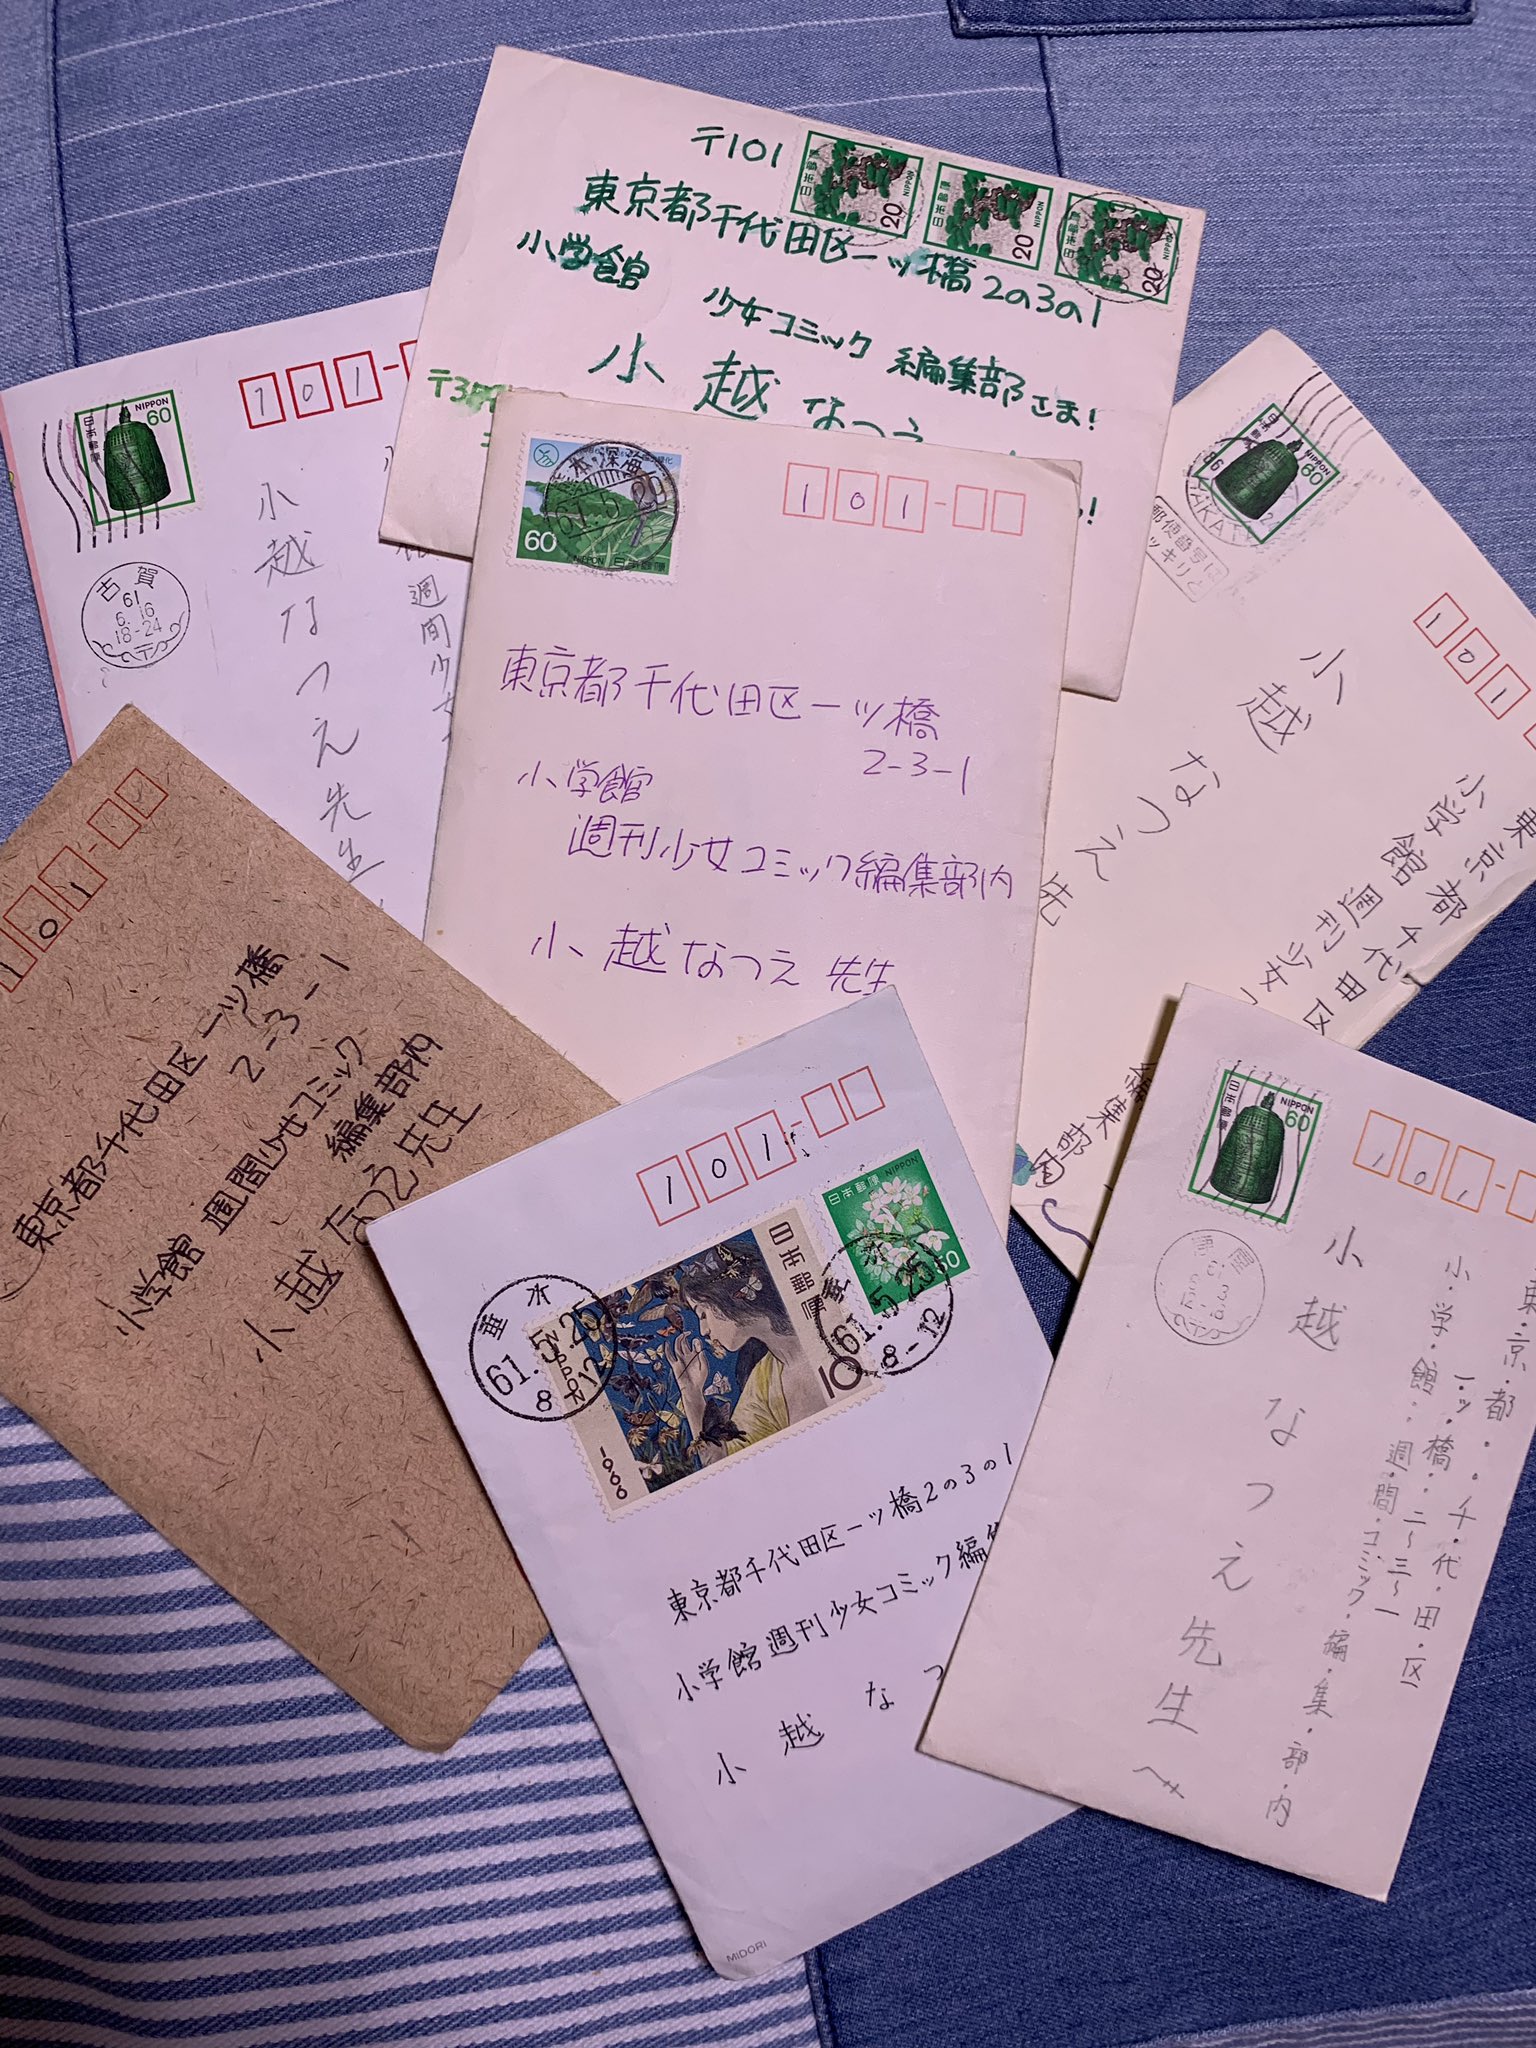 〒101
東京都千代田区一ッ橋2の3の1
小学館
少女コミック 編集部さま!
小越なつえ
日本郵便
NIPPON
20
日本郵便
NIPPON
20
日本郵便
NIPPON
20
101-
日本郵便
NIPPON
60
古賀
61
6.16
18-24
小越なつえ先生
週間少女
101
60
NIPPON 日本郵便
東京都千代田区一ッ橋
2-3-1
小学館
週刊少女コミック編集部内
小越なつえ先生
101
60
郵便番号は
東京都千代田区
小学館週刊少女コ
編集部
小越なつえ先
101-
東京都千代田区一ッ橋
2-3-1
小学館 週間少女コミック
編集部内
小越なつえ先生
101-
日本郵便
NIPPON
60
日本郵便
10
NIPPON
1966
垂水
61.5.25
8-12
垂水
61.5.25
8-12
東京都千代田区一ッ橋2の3の1
小学館週刊少女コミック編集
小越なつ
MIDORI
101-
日本郵便
NIPPON
60
東・京・都・千・代・田・区
一・ッ・橋・二〜三〜一
小・学・館・週・間・コミック・編・集・部・内
小越なつえ先生へ